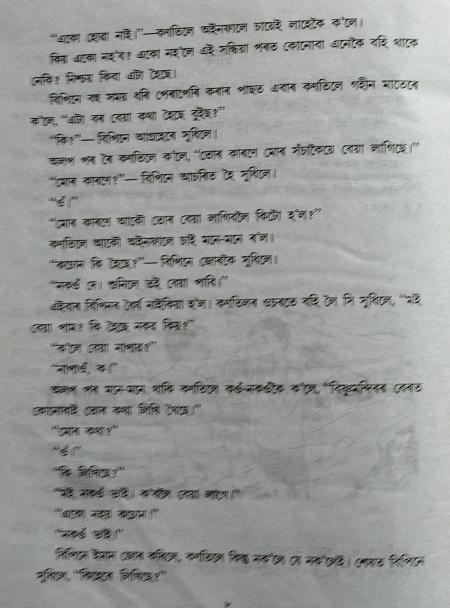 “একো হোৱা নাই।”—কণতিলে অইনফালে চায়েই লাহেকৈ ক’লে।
কিয় একো নহ’ব? একো নহ’লে এই সন্ধিয়া পৰত কোনোবা এনেকৈ বহি থাকে
নেকি? নিশ্চয় কিবা এটা হৈছে।
বিপিনে বহু সময় ধৰি পেৰাপেৰি কৰাৰ পাছত এবাৰ কণতিলে গহীন মাতেৰে
ক’লে, “এটা বৰ বেয়া কথা হৈছে বুইছ?”
“কি?”— বিপিনে আগ্ৰহেৰে সুধিলে।
অলপ পৰ ৰৈ কণতিলে ক’লে, “তোৰ কাৰণে মোৰ সঁচাকৈয়ে বেয়া লাগিছে।”
“মোৰ কাৰণে?”— বিপিনে আচৰিত হৈ সুধিলে।
“ওঁ।”
“মোৰ কাৰণে আকৌ তোৰ বেয়া লাগিবলৈ কিটো হ’ল?”
কণতিলে আকৌ অইনফালে চাই মনে-মনে ৰ’ল।
“কচোন কি হৈছে?”— বিপিনে জোৰকৈ সুধিলে।
“নকওঁ দে। শুনিলে তই বেয়া পাবি।”
এইবাৰ বিপিনৰ ধৈৰ্য নাইকিয়া হ’ল। কণতিলৰ ওচৰতে বহি লৈ সি সুধিলে, “মই
বেয়া পাম? কি হৈছে নকৱ কিয়?”
“ক’লে বেয়া নাপাৱ?”
“নাপাওঁ, ক।”
অলপ পৰ মনে-মনে থাকি কণতিলে কওঁ-নকওঁকৈ ক’লে, “বিষ্ণুমন্দিৰৰ বেৰত
কোনোবাই তোৰ কথা লিখি থৈছে।”
“মোৰ কথা?”
“ওঁ।”
“কি লিখিছে?”
“মই নকওঁ ভাই। ক’বলৈ বেয়া লাগে।”
“একো নহয় কচোন।”
“নকওঁ ভাই।”
বিপিনে ইমান জোৰ কৰিলে, কণতিলে কিন্তু নক’লে যে নক’লেই। শেষত বিপিনে
সুধিলে, “কিহেৰে লিখিছে?”